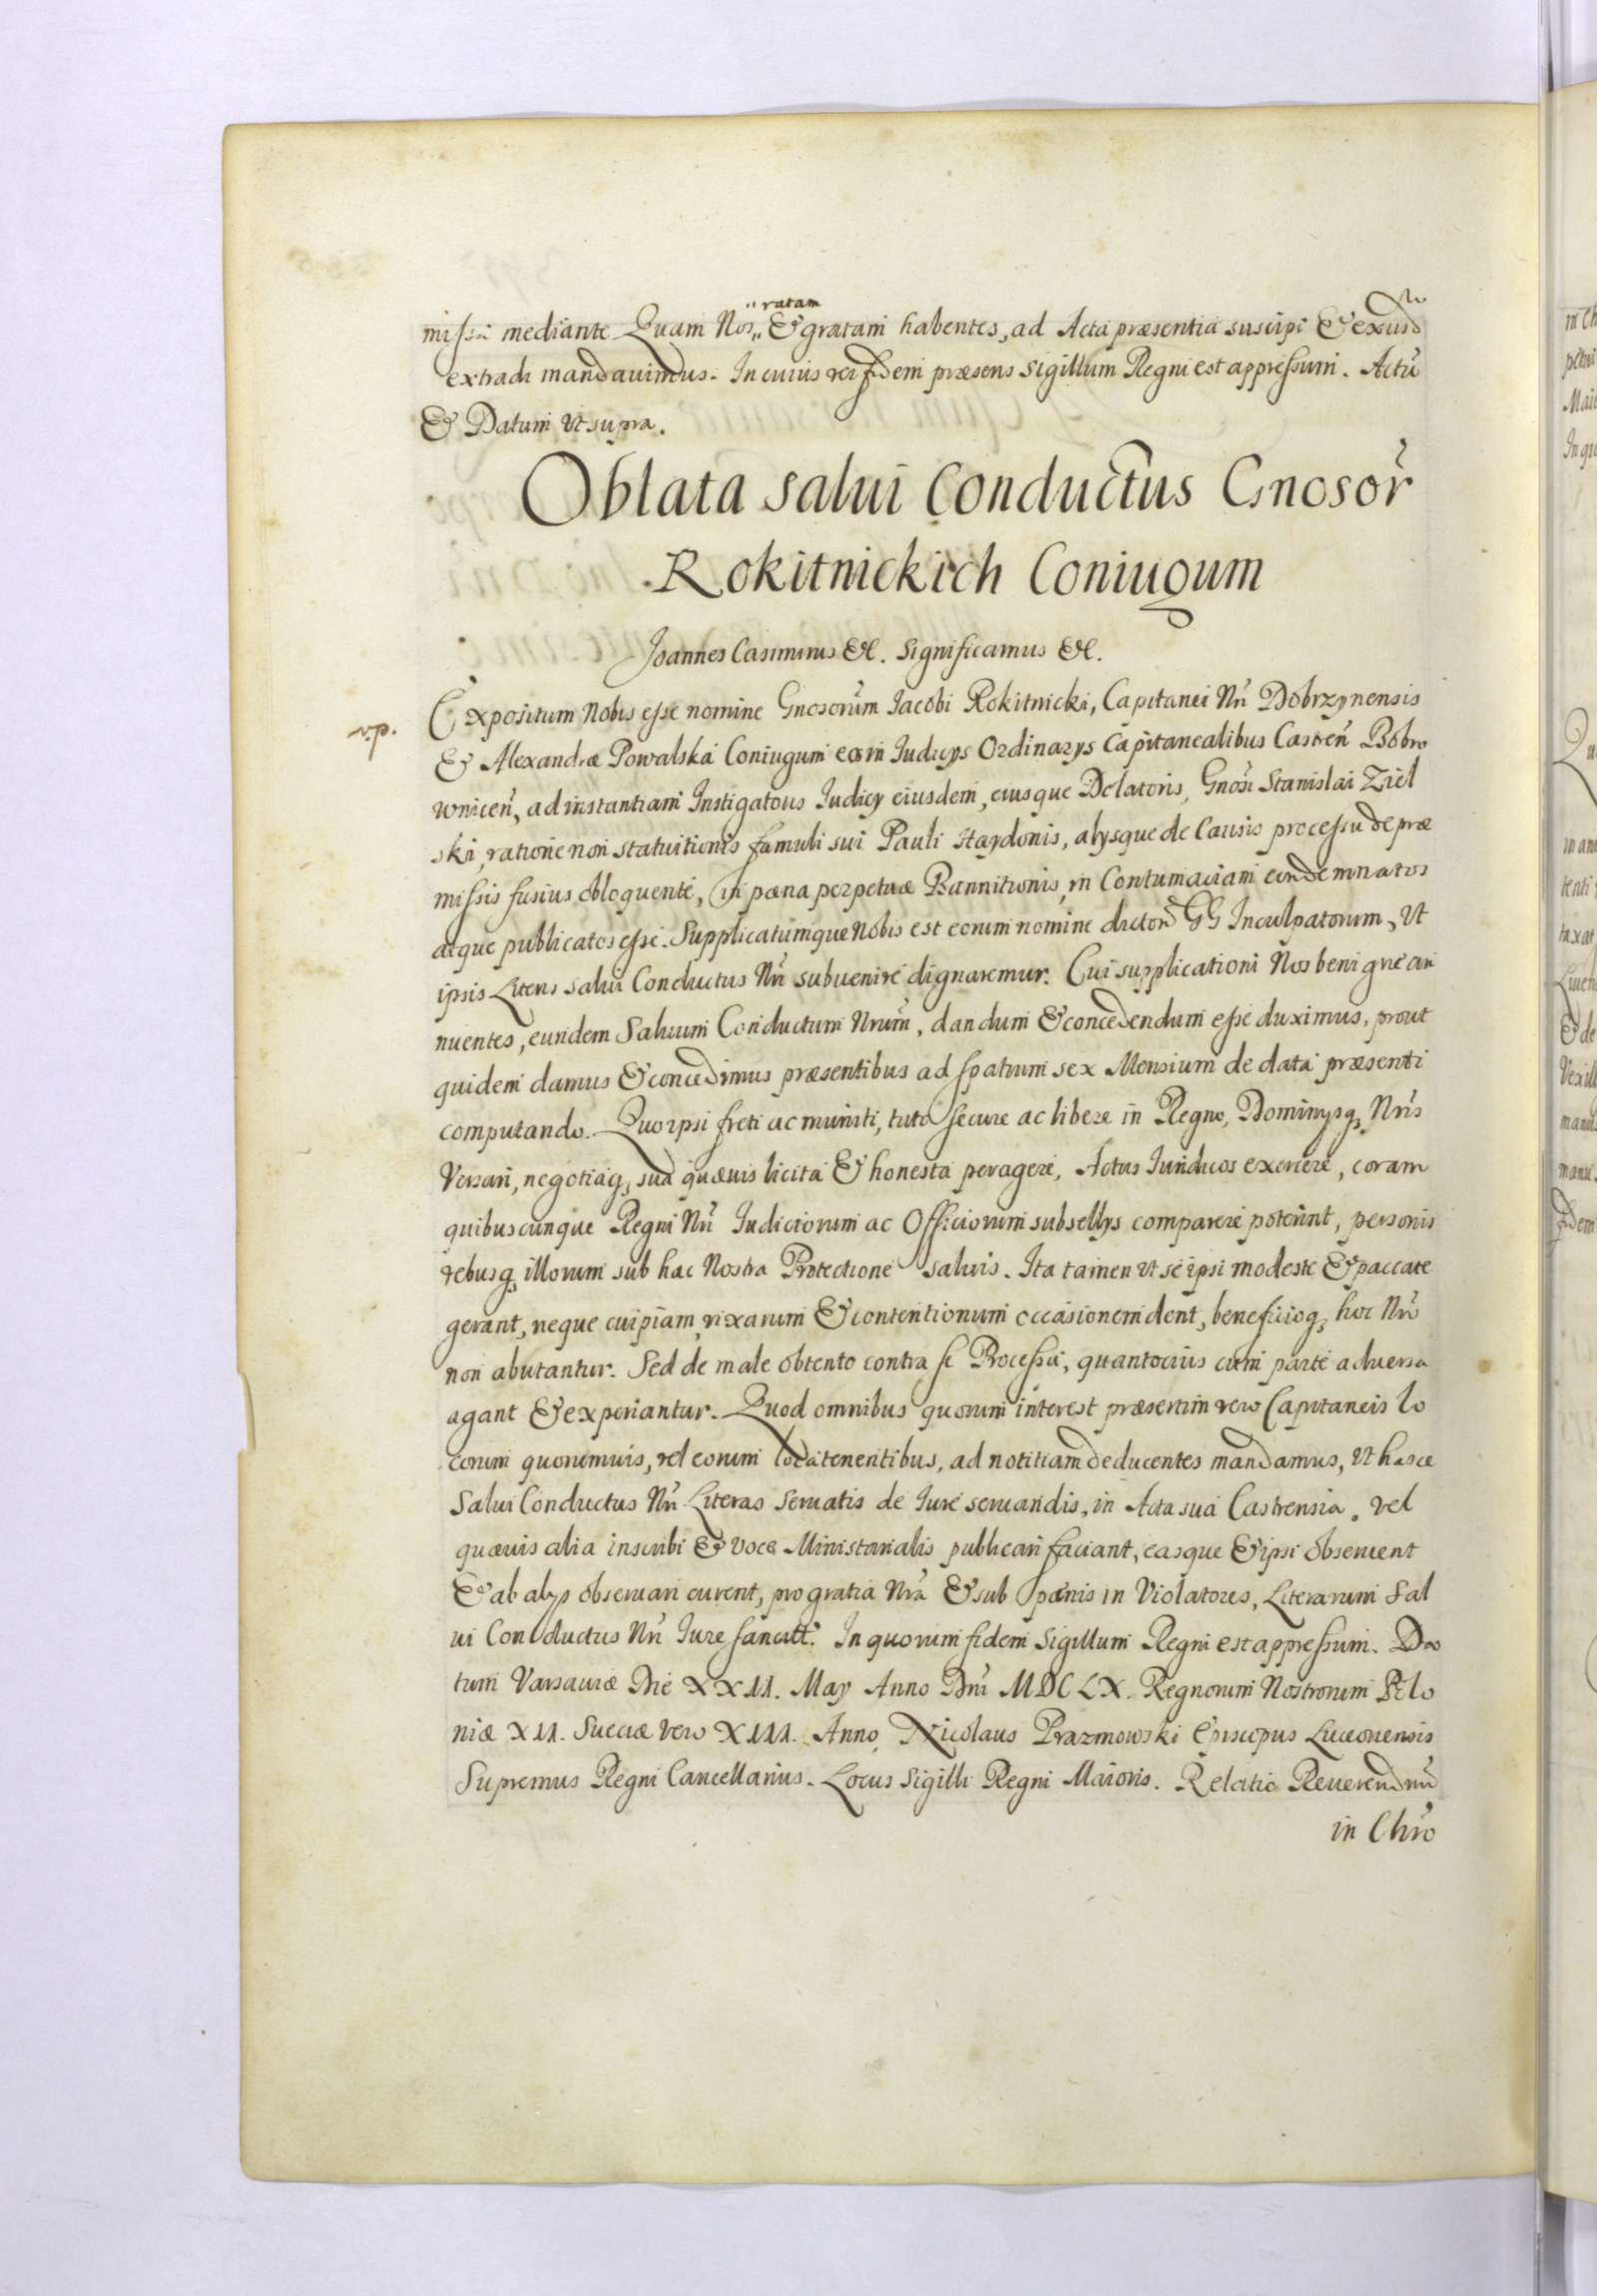 ratam
missa mediante. Quam Nos„ & gratam habentes, ad Acta præsentia suscipi & exusd
extradi mandauimus. In cuius rei fidem præsens sigillum Regni est appressum. Actũ
& Datum ut supra.
Oblata salui Conductus Gnosor̃
Rokitnickich Coniugum
Joannes Casimirus &c. Significamus &c.
v.p.
Expositum Nobis esse nomine Gnosorũm Jacobi Rokitnicki, Capitanei Nr̃i Dobrzynensis
& Alexandræ Powalska Coniugum eos in Judicÿs Ordinarÿs Capitanealibus Castreñ Bobro
wniceñ, ad instantiam Instigatoris Judicÿ eiusdem, eiusque Delatoris, Gnosi Stanislai Ziel
ski, ratione non statuitionis famuli sui Pauli Haydonis, alÿsque de Causis processu de præ
missis fusius obloquente, in pœna perpetuæ Bannitionis, in Contumaciam condemnatos
atque publicatos esse. Supplicatumque Nobis est eorum nomine dictorũ GG Inculpatorum, Ut
ipsis Literis salui Conductus Nr̃i subuenire dignaremur. Cui supplicationi Nos benigne an
nuentes, eundem Saluum Conductum Nrũm, dandum & concedendum esse duximus, prout
quidem damus & concedimus præsentibus ad spatium sex Mensium de data præsenti
computando. Quo ipsi freti ac muniti, tuto secure ac libere in Regno, Dominÿsq, Nr̃is
Versari, negotiaq, sua quæuis licita & honesta peragere, Actus Juridicos exercere, coram
quibuscunque Regni Nr̃i Judiciorum ac Officiorum subsellÿs comparere poterint, personis
rebusq, illorum sub hac Nostra Protectione saluis. Ita tamen ut se ipsi modeste & paccate
gerant, neque cuipiam rixarum & contentionum occasionem dent, beneficioq, hoc Nrõ
non abutantur. Sed de male obtento contra se Processu, quantocius cum parte aduersa
agant & experiantur. Quod omnibus quorum interest præsertim vero Capitaneis lo
corum quorumuis, vel eorum locatenentibus, ad notitiam deducentes mandamus, ut hasce
Salui Conductus Nr̃i Literas seruatis de Jure seruandis, in Acta sua Castrensia, vel
quæuis alia inscribi & voce Ministerialis publicari faciant, easque & ipsi obseruent
& ab alÿs obseruari curent, pro gratia Nrã & sub pœnis in Violatores, Literarum Sal
ui Conductus Nr̃i Jure sancitt. In quorum fidem Sigillum Regni est appressum. Da
tum Varsauiæ Die XXII. May Anno Dñi MDCLX. Regnorum Nostrorum Polo
niæ XII. Sueciæ vero XIII. Anno, Nicolaus Prazmowski Episcopus Luceoriensis
Supremus Regni Cancellarius. Locus Sigilli Regni Maioris. Relatio Reuerendmi
in Chrõ